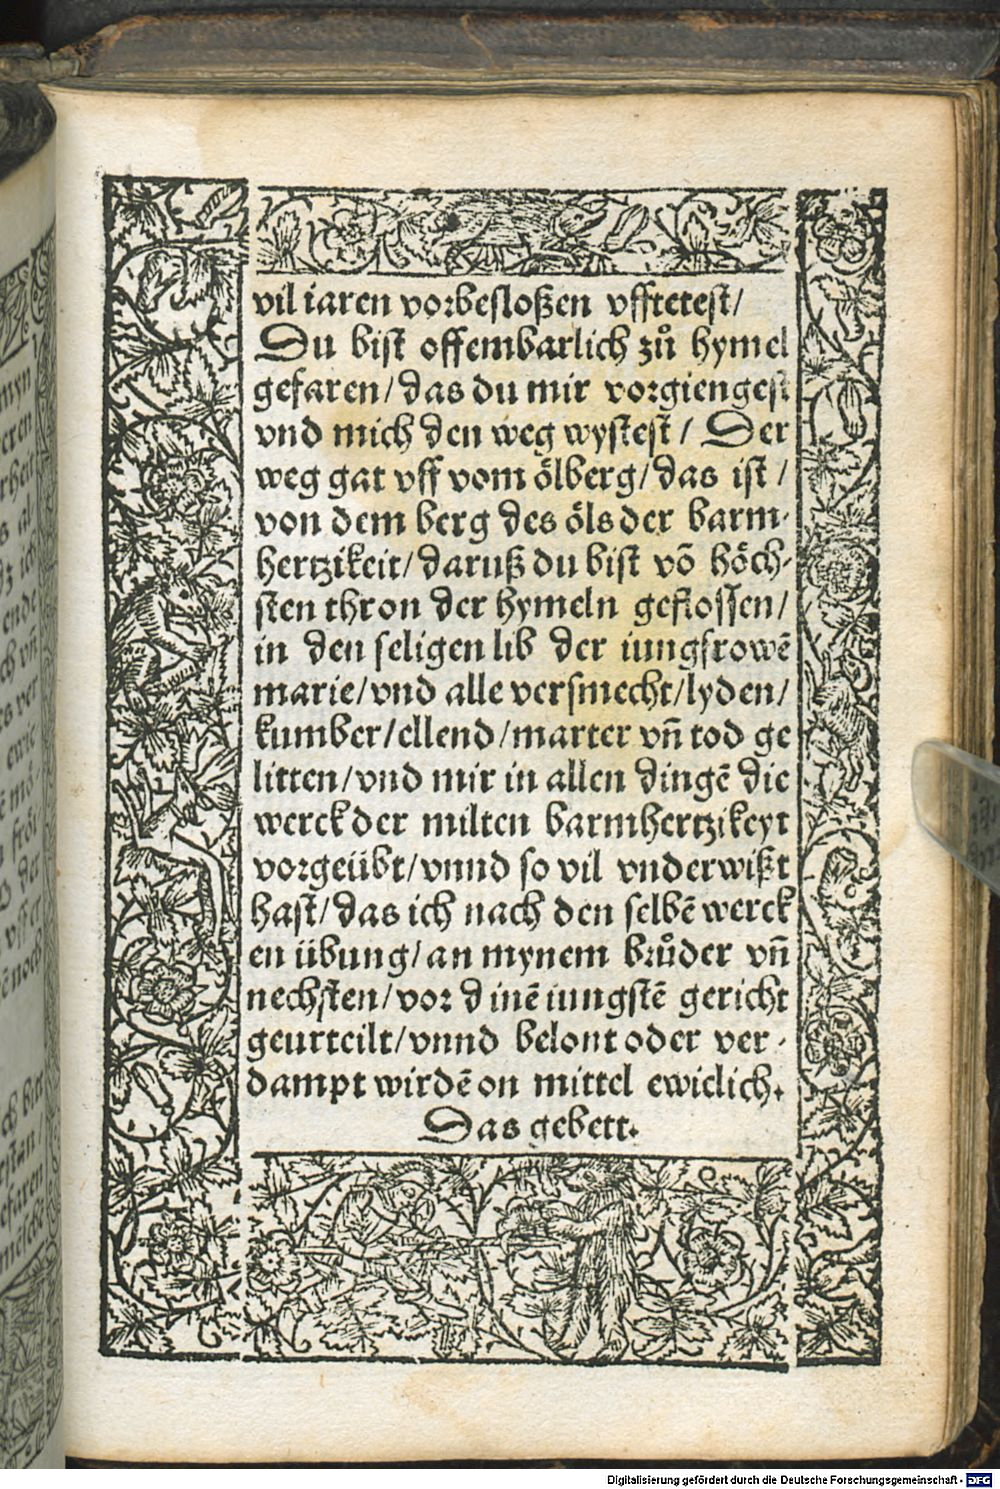 vil iaren vorbesloßen vfftetest/
Du bist offembarlich zů hymel
gefaren/das du mir vorgiengest
vnd mich den weg wystest/ Der
weg gat vff vom ölberg/das ist/
von dem berg des öls der barm-
hertzikeit/daruß du bist võ höch-
sten thron der hymeln geflossen/
in den seligen lib der iungfrowẽ
marie/vnd alle versmecht/lyden/
kumber/ellend/marter vñ tod ge
litten/vnd mir in allen dingẽ die
werck der milten barmhertzikeyt
vorgeübt/vnnd so vil vnderwißt
hast/das ich nach den selbẽ werck
en übung/an mynem brůder vñ
nechsten/vor dinẽ iungstẽ gericht
geurteilt/vnnd belont oder ver-
dampt wirdẽ on mittel ewiclich.
Das gebett.
Digitalisierung gefördert durch die Deutsche Forschungsgemeinschaft - DFG